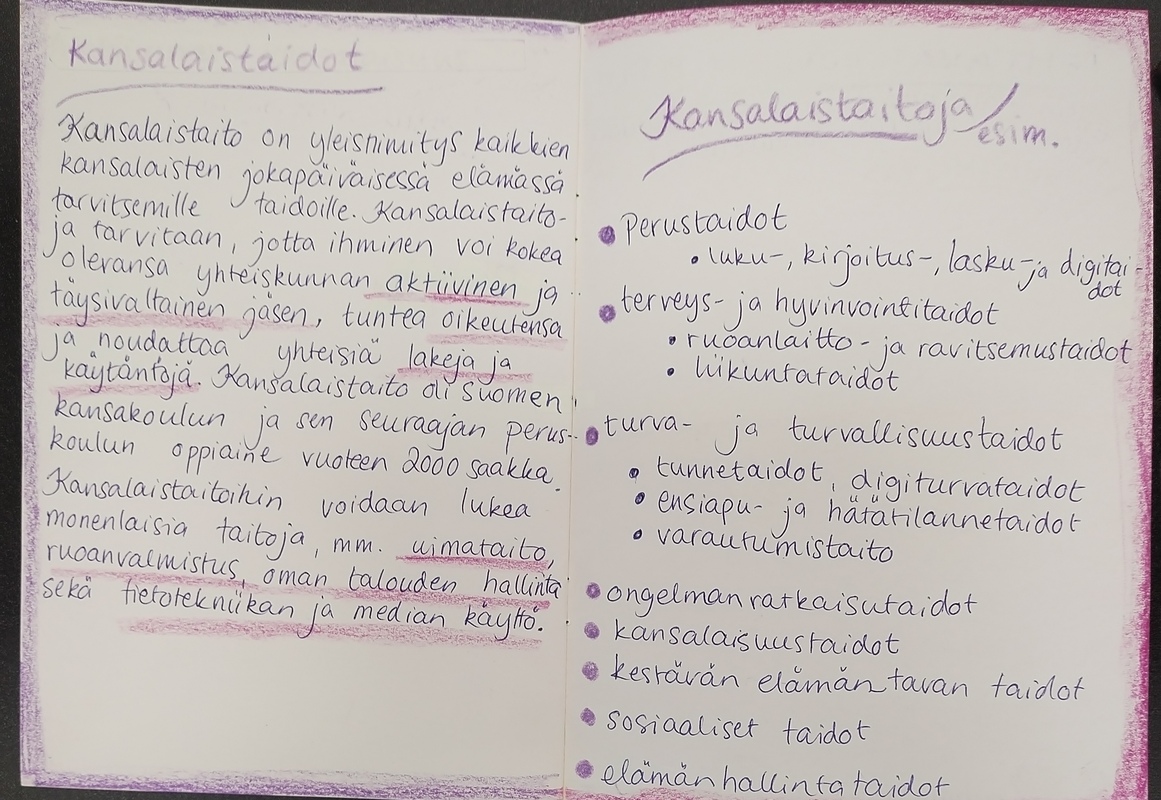 Kansalaistaidot
Kansalaistaito on yleisnimitys kaikkien
kansalaisten jokapäiväisessä elämässä
tarvitsemille taidoille. Kansalaistaito-
ja tarvitaan, jotta ihminen voi kokea
olevansa yhteiskunnan aktiivinen ja
täysivaltainen jäsen, tuntea oikeutensa
ja noudattaa yhteisiä lakeja ja
käytäntöjä. Kansalaistaito oli suomen
kansakoulun ja sen seuraajan perus-
koulun oppiaine vuoteen 2000 saakka.
Kansalaistaitoihin voidaan lukea
monenlaisia taitoja, mm. uimataito,
ruoanvalmistus, oman talouden hallinta
sekä tietotekniikan ja median käyttö.
Kansalaistaitoja/esim.
• Perustaidot
• luku-, kirjoitus-, lasku- ja digitai-
dot
• terveys- ja hyvinvointitaidot
• ruoanlaitto- ja ravitsemustaidot
• liikuntataidot
• turva- ja turvallisuustaidot
• tunnetaidot, digiturvataidot
• ensiapu- ja hätätilannetaidot
• varautumistaito
• ongelmanratkaisutaidot
• kansalaisuustaidot
• kestävän elämäntavan taidot
• sosiaaliset taidot
• elämänhallintataidot